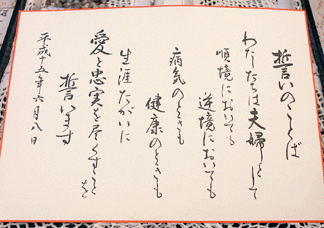 誓いのことば
わたしたちは夫婦として
順境においても
逆境においても
病気のときも
健康のときも
生涯たがいに
愛と忠実を尽くすことを
誓います
平成十五年六月八日